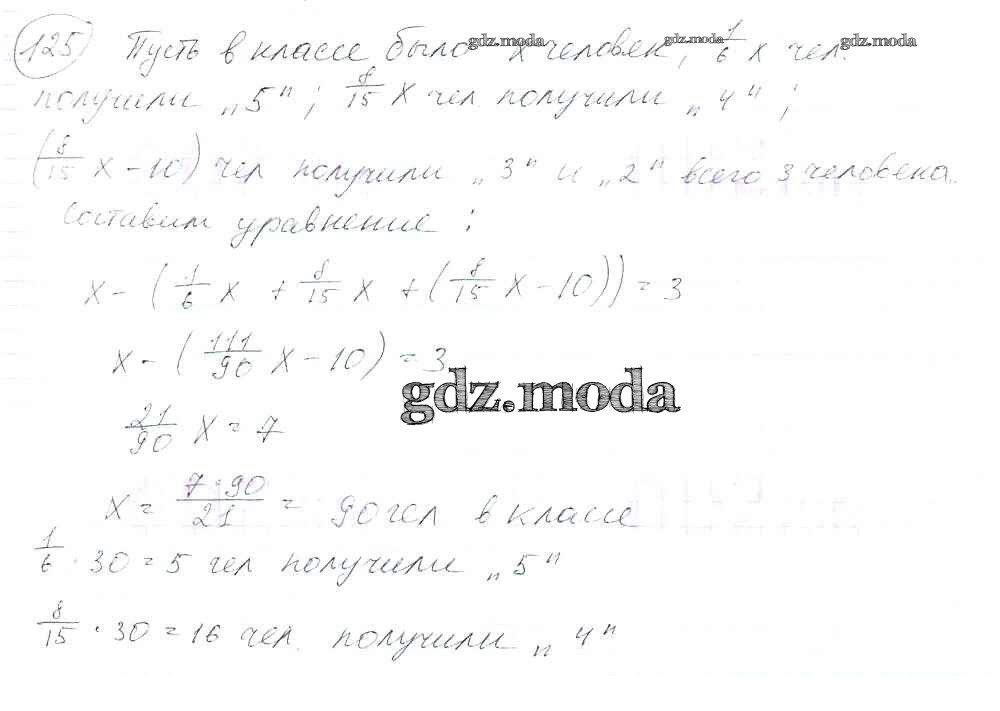 125 Пусть в классе было x человек, 1/6 x чел.
gdz.moda gdz.moda gdz.moda
получили „5"; 8/15 x чел. получили „4";
(8/15 x - 10) чел получили „3" и „2" всего 3 человека.
Составим уравнение:
x - (1/6 x + 8/15 x + (8/15 x - 10)) = 3
x - (111/90 x - 10) = 3
gdz.moda
21/90 x = 7
x = 7·90/21 = 90 чел в классе
1/6 · 30 = 5 чел получили „5"
8/15 · 30 = 16 чел. получили „4"